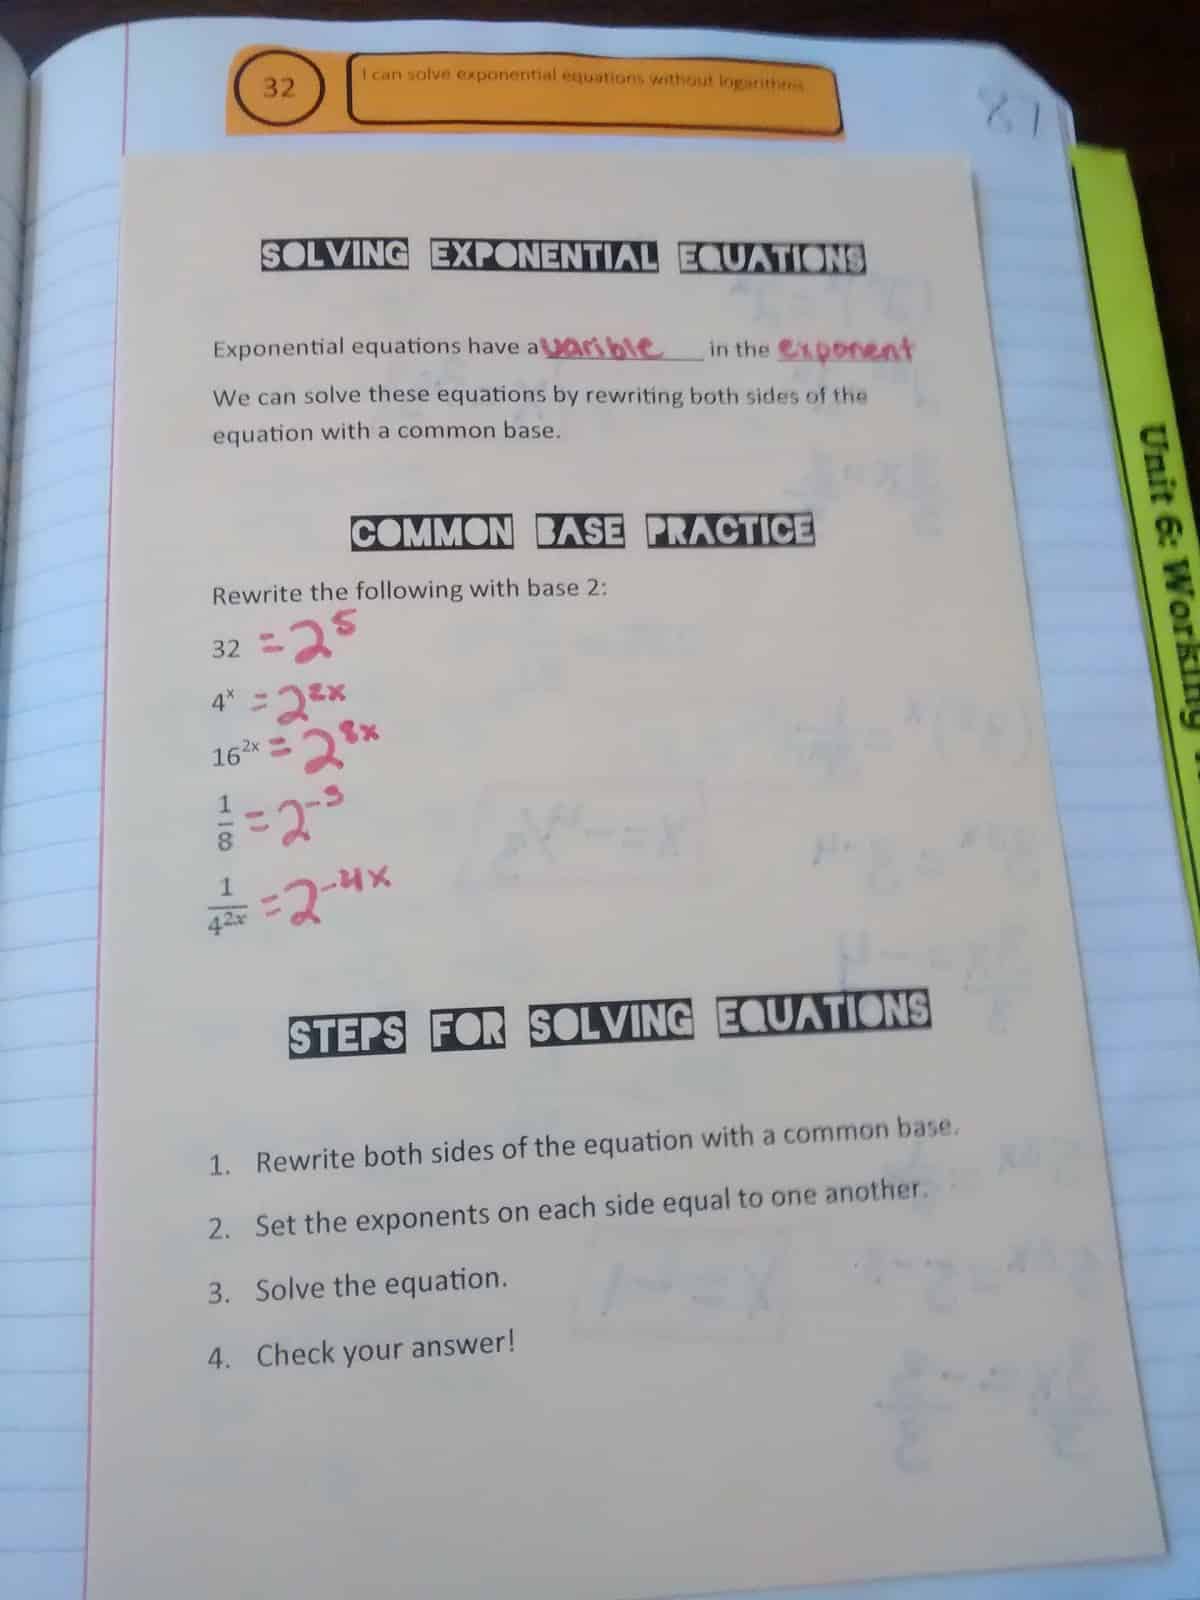 32
I can solve exponential equations without logarithms.
87
SOLVING EXPONENTIAL EQUATIONS
Exponential equations have a varible in the exponent
We can solve these equations by rewriting both sides of the
equation with a common base.
COMMON BASE PRACTICE
Rewrite the following with base 2:
32 = 2⁵
4ˣ = 2²ˣ
16²ˣ = 2⁸ˣ
1/8 = 2⁻³
1/4²ˣ = 2⁻⁴ˣ
STEPS FOR SOLVING EQUATIONS
1. Rewrite both sides of the equation with a common base.
2. Set the exponents on each side equal to one another.
3. Solve the equation.
4. Check your answer!
Unit 6: Working